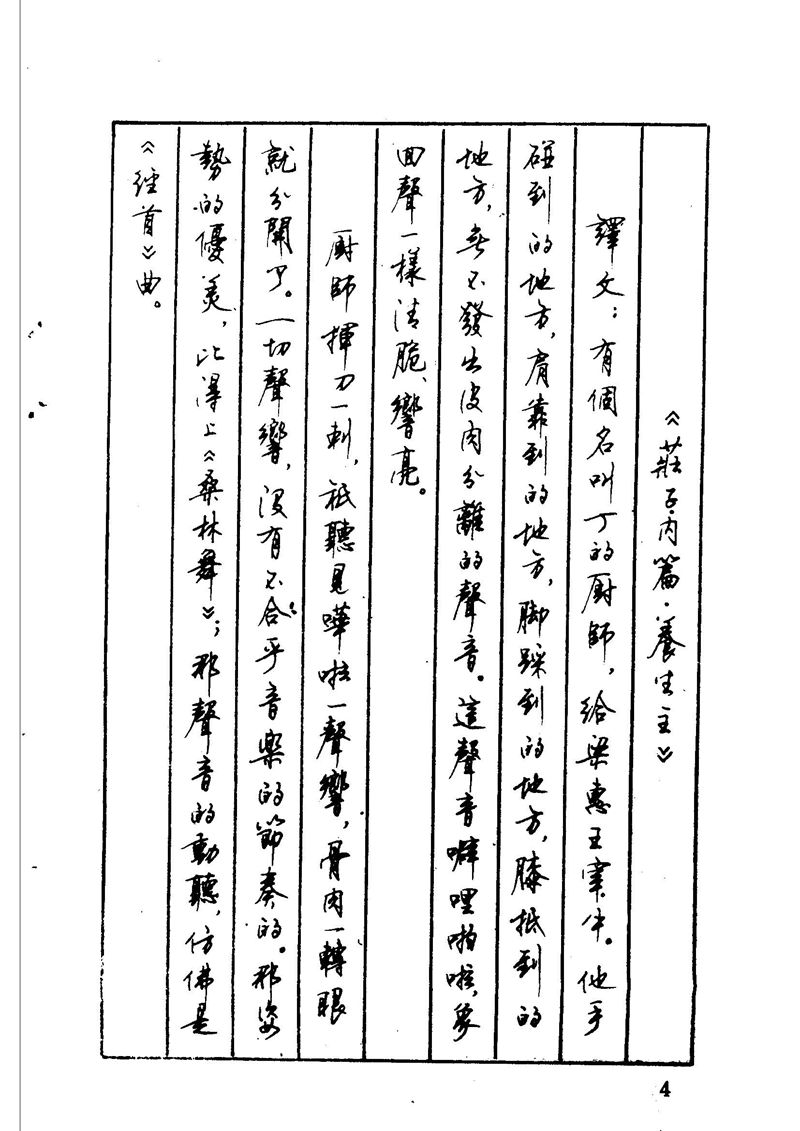 《莊子·內篇·養生主》
譯文：有個名叫丁的厨師，給梁惠王宰牛。他手
碰到的地方，肩靠到的地方，脚踩到的地方，膝抵到的
地方，無不發出皮肉分離的聲音。這聲音噼哩啪啦，象
回聲一樣清脆、響亮。
厨師揮刀一刺，祗聽見嘩啦一聲響，骨肉一轉眼
就分開了。一切聲響，没有不合乎音樂的節奏的。那姿
勢的優美，比得上《桑林舞》；那聲音的動聽，仿佛是
《經首》曲。
4